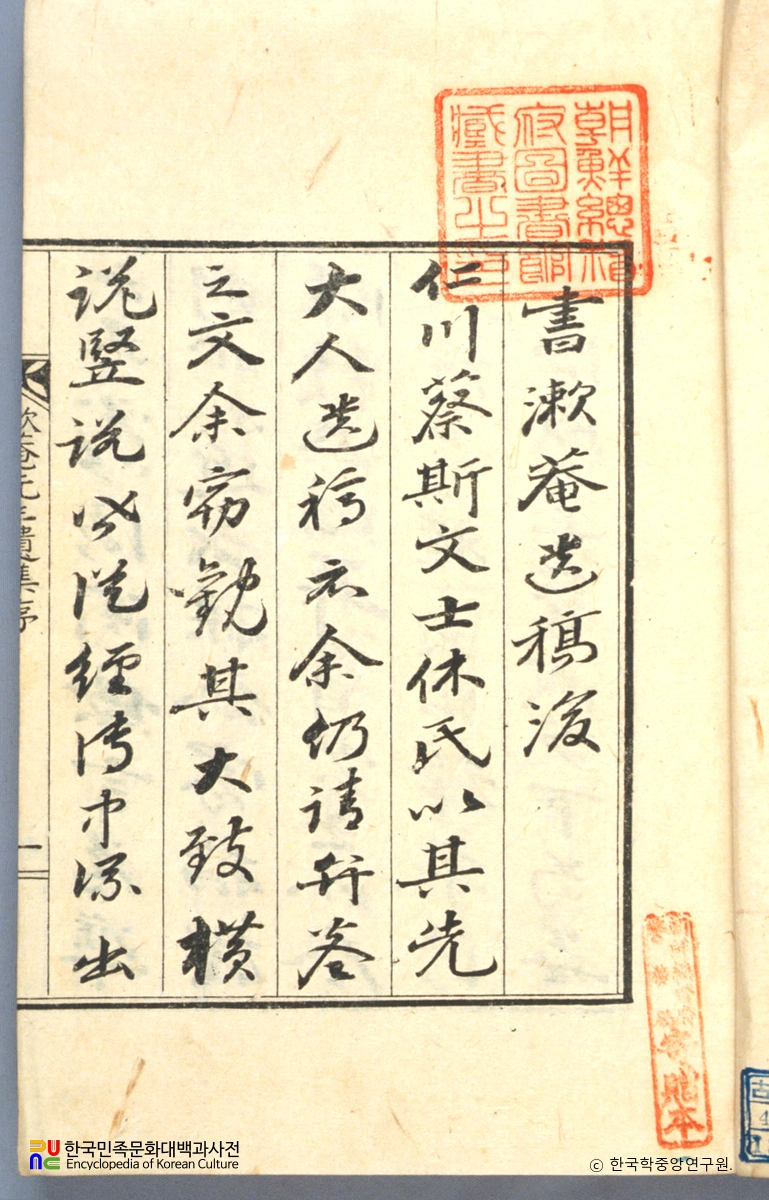 朝鮮總督
府圖書館
藏書之印
書漱菴遺稿後
仁川蔡斯文士休氏以其先
大人遺稿示余仍請弁卷
之文余竊觀其大致橫
說竪說皆從經傳中流出
漱菴先生遺集序
一
貼本
古
한국민족문화대백과사전
Encyclopedia of Korean Culture
ⓒ 한국학중앙연구원.